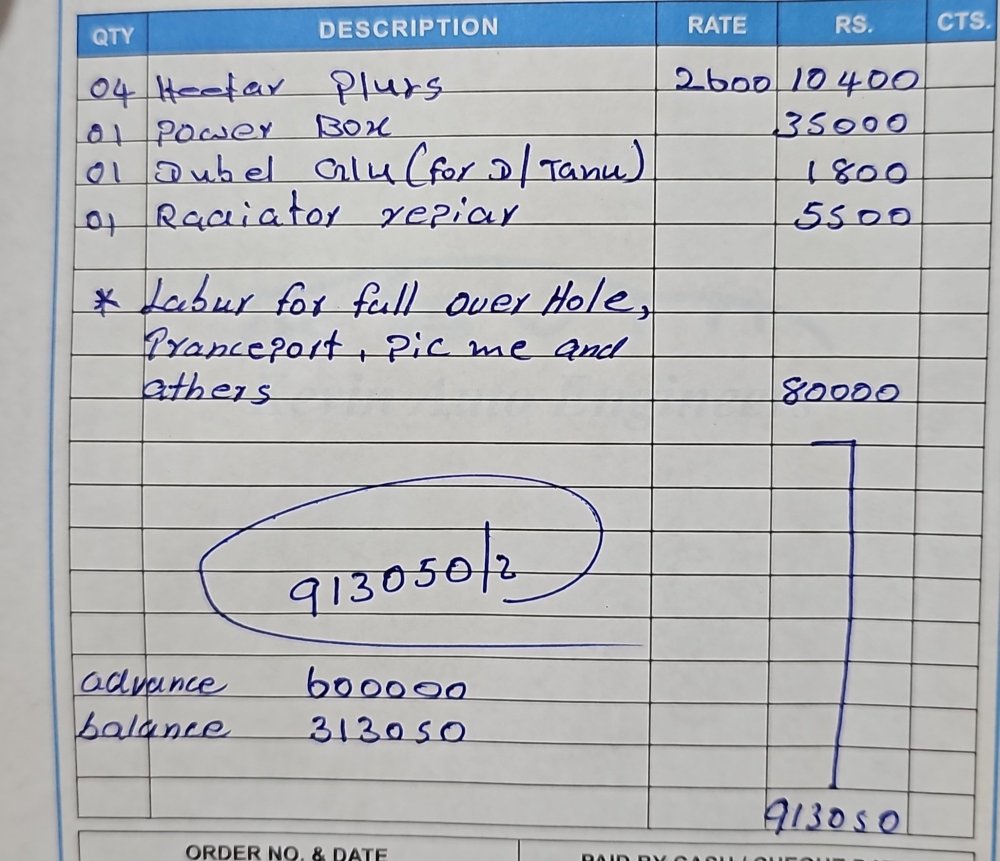 QTY DESCRIPTION RATE RS. CTS.
04 Heefar Plurs 2600 10400
01 Power Box 35000
01 Dubel Glu (for D/Tanu) 1800
01 Raaiator repiar 5500
* Labur for full over Hole,
Pranceport, Pic me and
athers 80000
913050/2
advance 600000
balance 313050
913050
ORDER NO. & DATE